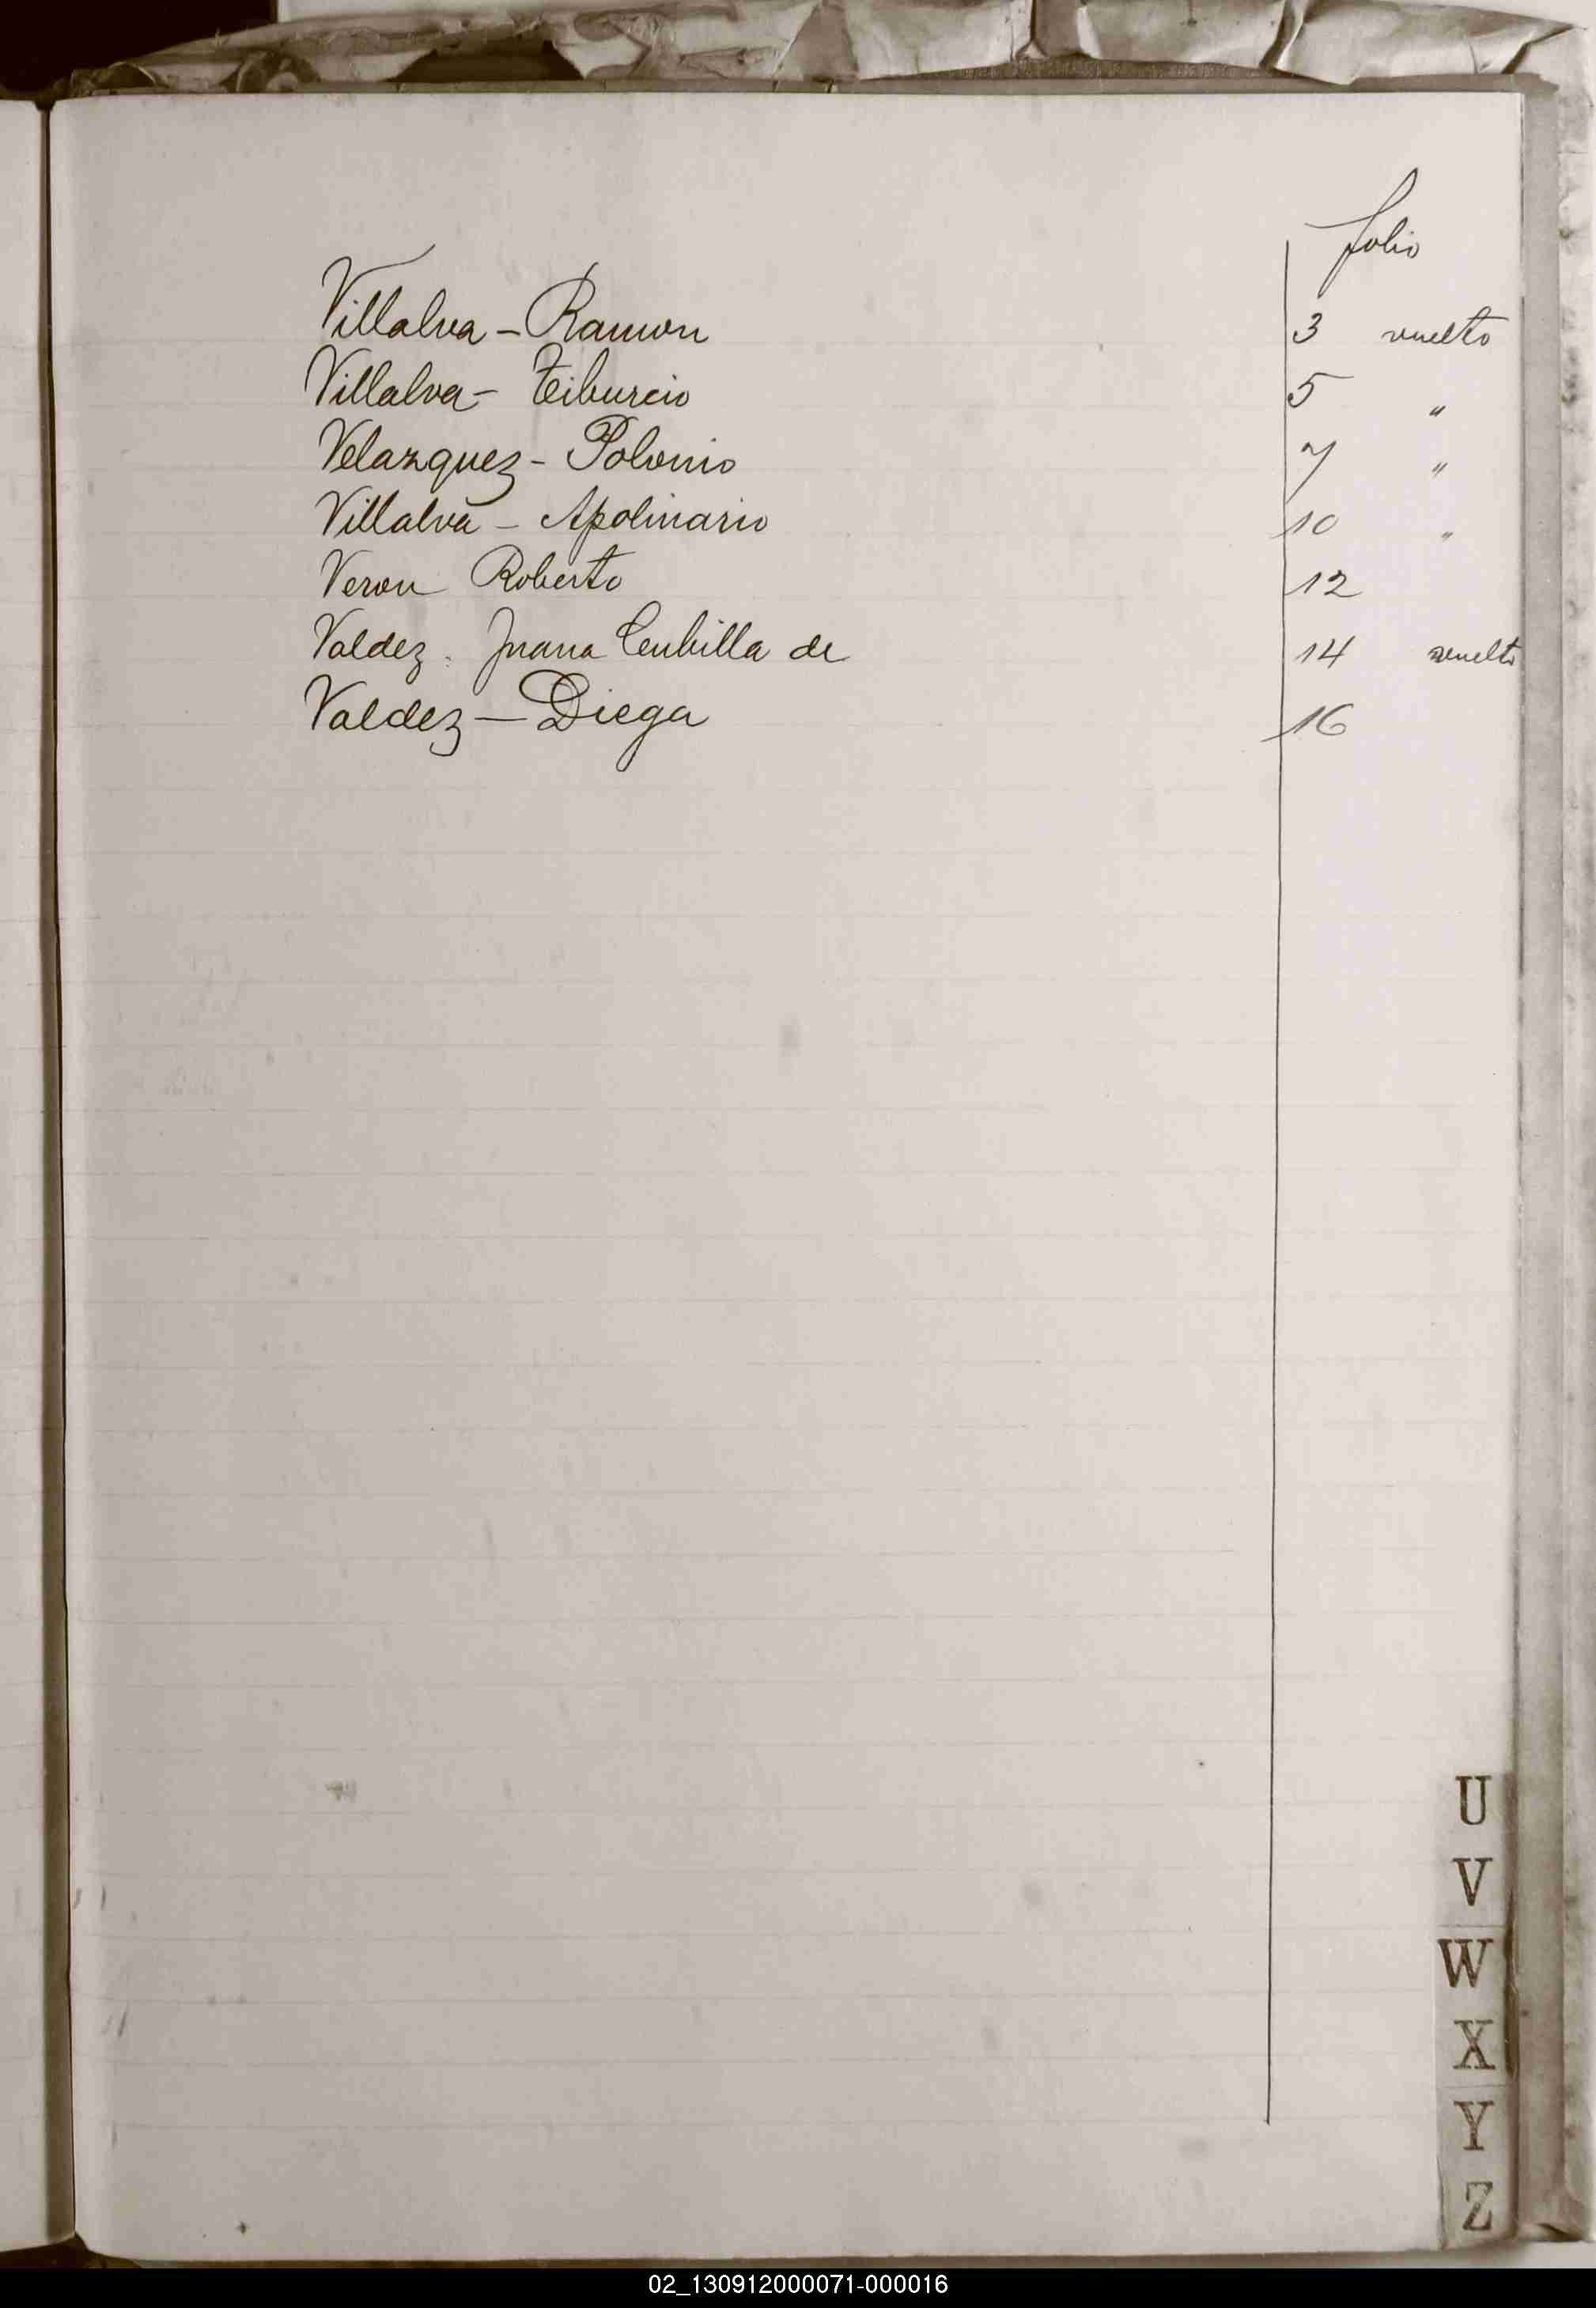 folio
Villalva - Ramon 3 vuelto
Villalva - Tiburcio 5 "
Velazquez - Polonio 7 "
Villalva - Apolinario 10 "
Veron Roberto 12
Valdez. Juana Cubilla de 14 vuelto
Valdez - Diega 16
U
V
W
X
Y
Z
02_130912000071-000016